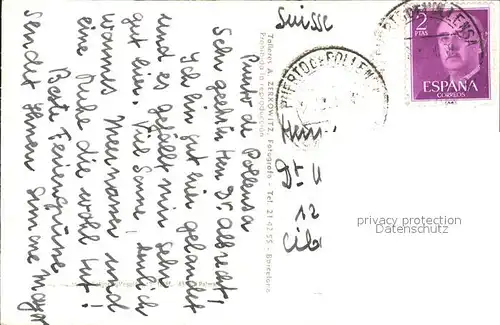 Puerto de Pollensa
Sehr geehrter Herr Dr. Albrecht!
Ich bin hier gut gelandet
und es gefällt mir sehr
gut hier. Viel Sonne, herrlich
warmes Meerwasser und
eine Ruhe die wohl tut!
Beste Feriengrüsse
sendet Ihnen Simone
Talleres A. ZERKOWITZ, Fotógrafo - Tel. 21 43 55 - Barcelona
Prohibida la reproducción
Suisse
PUERTO DE POLLENSA
2
PTAS
ESPAÑA
CORREOS
Herrn
Dr.
12
privacy protection
Datenschutz